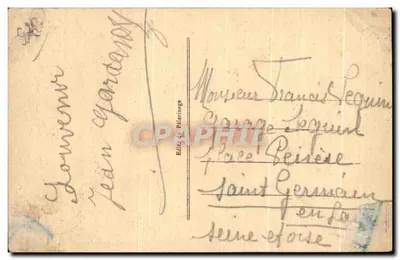 Souvenir
Jean
Edit. du Pèlerinage
Monsieur Francis Seguin
Garage Seguin
place
Saint Germain
en La
Seine et oise
CPAPHIL